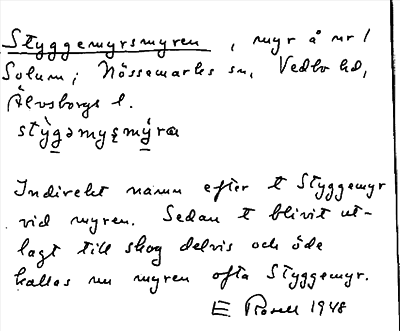 Styggemyrsmyren, myr å nr 1
Solum; Nössemarks sn, Vedbo hd,
Älvsborgs l.
stỳgəmyʂmýra
Indirekt namn efter t Styggemyr
vid myren. Sedan t blivit ut-
lagt till skog delvis och öde
kallas nu myren ofta Styggemyr.
E Rosell 1948